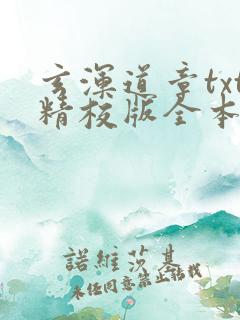 玄浑道章txt
精校版全本
諾維莎基
未任同意禁止转载